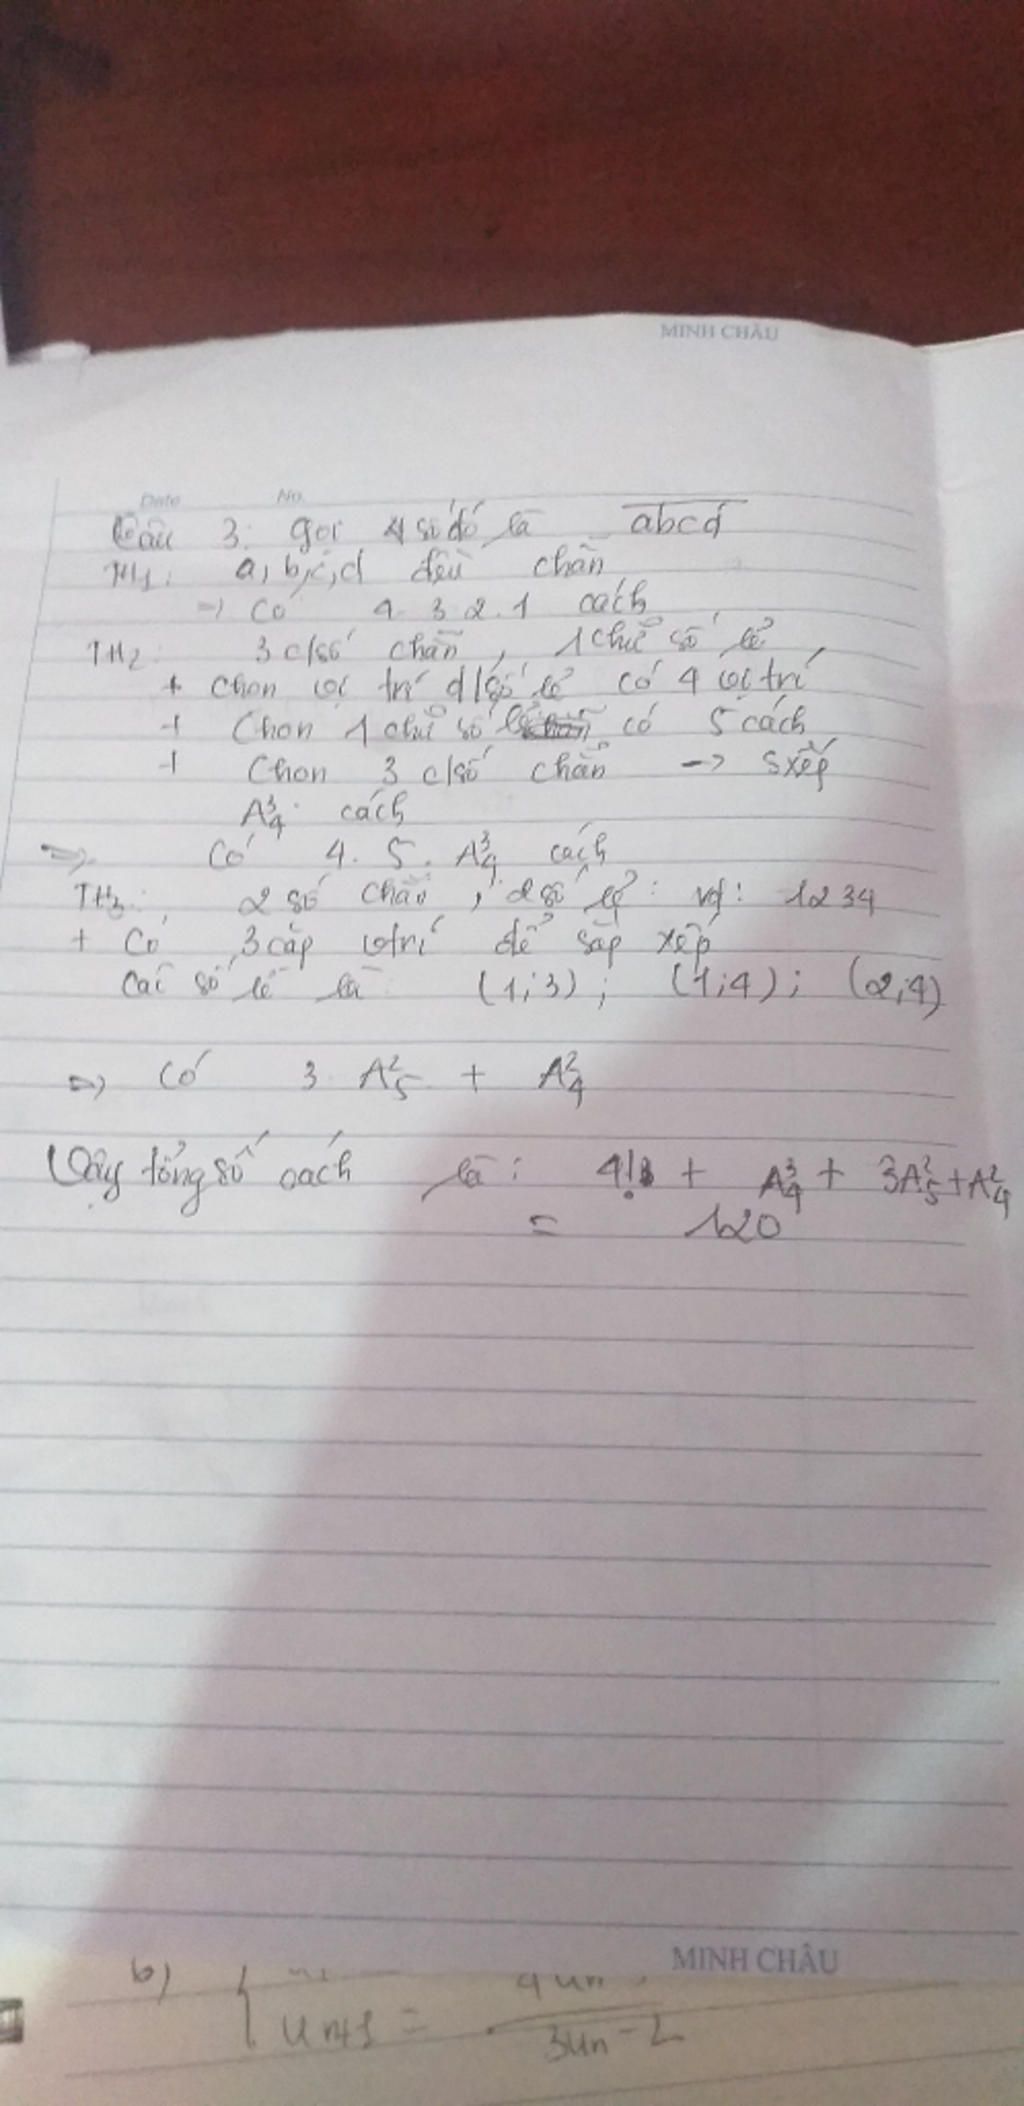 MINH CHÂU
Date No.
Câu 3: gọi 4 số đó là abcd
TH1: a, b, c, d đều chẵn
=> Có 4.3.2.1 cách
TH2: 3 c/số chẵn, 1 chữ số lẻ
+ Chọn vị trí c/số lẻ có 4 vị trí
+ Chọn 1 chữ số lẻ có 5 cách
+ Chọn 3 c/số chẵn -> sxếp
A³₄ cách
=> Có 4. 5. A³₄ cách
TH3: 2 số chẵn, 2 số lẻ: vd: 1234
+ Có 3 cặp vtrí để sắp xếp
các số lẻ là (1;3); (1;4); (2;4)
=> Có 3 A²₅ + A²₄
Vậy tổng số cách là: 4! + A³₄ + 3A²₅ + A²₄
= 120
MINH CHÂU
b)
4un
un+1 =
3un - 2